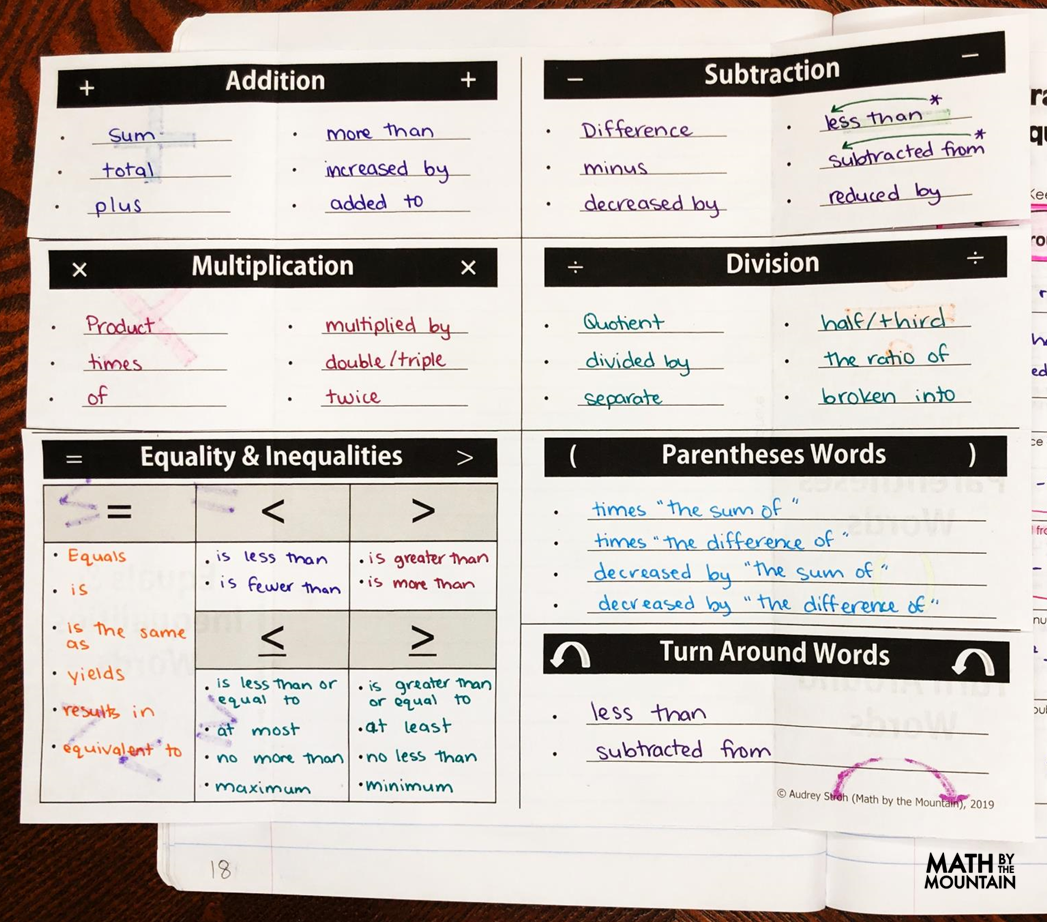 + Addition +
· sum
· total
· plus
· more than
· increased by
· added to
− Subtraction −
· Difference
· minus
· decreased by
· less than *
· subtracted from *
· reduced by
× Multiplication ×
· Product
· times
· of
· multiplied by
· double/triple
· twice
÷ Division ÷
· Quotient
· divided by
· separate
· half/third
· the ratio of
· broken into
= Equality & Inequalities >
=
· Equals
· is
· is the same
as
· yields
· results in
· equivalent to
<
· is less than
· is fewer than
>
· is greater than
· is more than
≤
· is less than or
equal to
· at most
· no more than
· maximum
≥
· is greater than
or equal to
· at least
· no less than
· minimum
( Parentheses Words )
· times "the sum of "
· times "the difference of "
· decreased by "the sum of "
· decreased by "the difference of"
Turn Around Words
· less than
· subtracted from
© Audrey Stroh (Math by the Mountain), 2019
18
MATH BY THE
MOUNTAIN